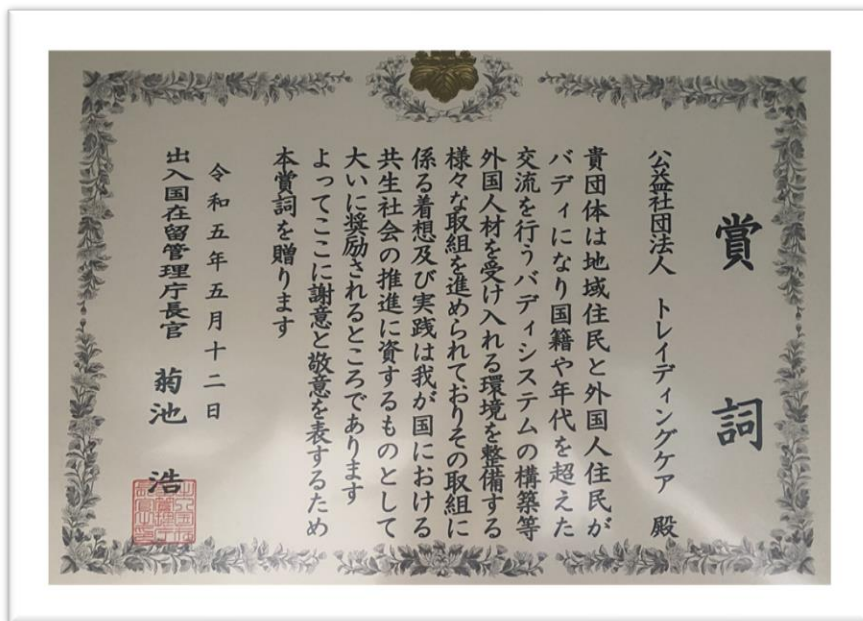 賞詞
公益社団法人 トレイディングケア 殿
貴団体は地域住民と外国人住民が
バディになり国籍や年代を超えた
交流を行うバディシステムの構築等
外国人材を受け入れる環境を整備する
様々な取組を進められておりその取組に
係る着想及び実践は我が国における
共生社会の推進に資するものとして
大いに奨励されるところであります
よってここに謝意と敬意を表するため
本賞詞を贈ります
令和五年五月十二日
出入国在留管理庁長官 菊池 浩